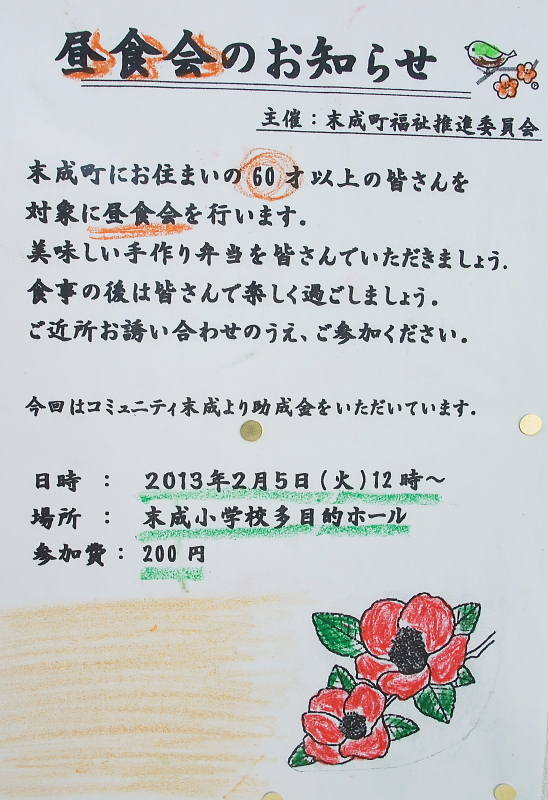 昼食会のお知らせ
主催：末成町福祉推進委員会
末成町にお住まいの60才以上の皆さんを
対象に昼食会を行います。
美味しい手作り弁当を皆さんでいただきましょう.
食事の後は皆さんで楽しく過ごしましょう。
ご近所お誘い合わせのうえ、ご参加ください。
今回はコミュニティ末成より助成金をいただいています。
日時 ： 2013年2月5日(火)12時～
場所 ： 末成小学校多目的ホール
参加費： 200 円